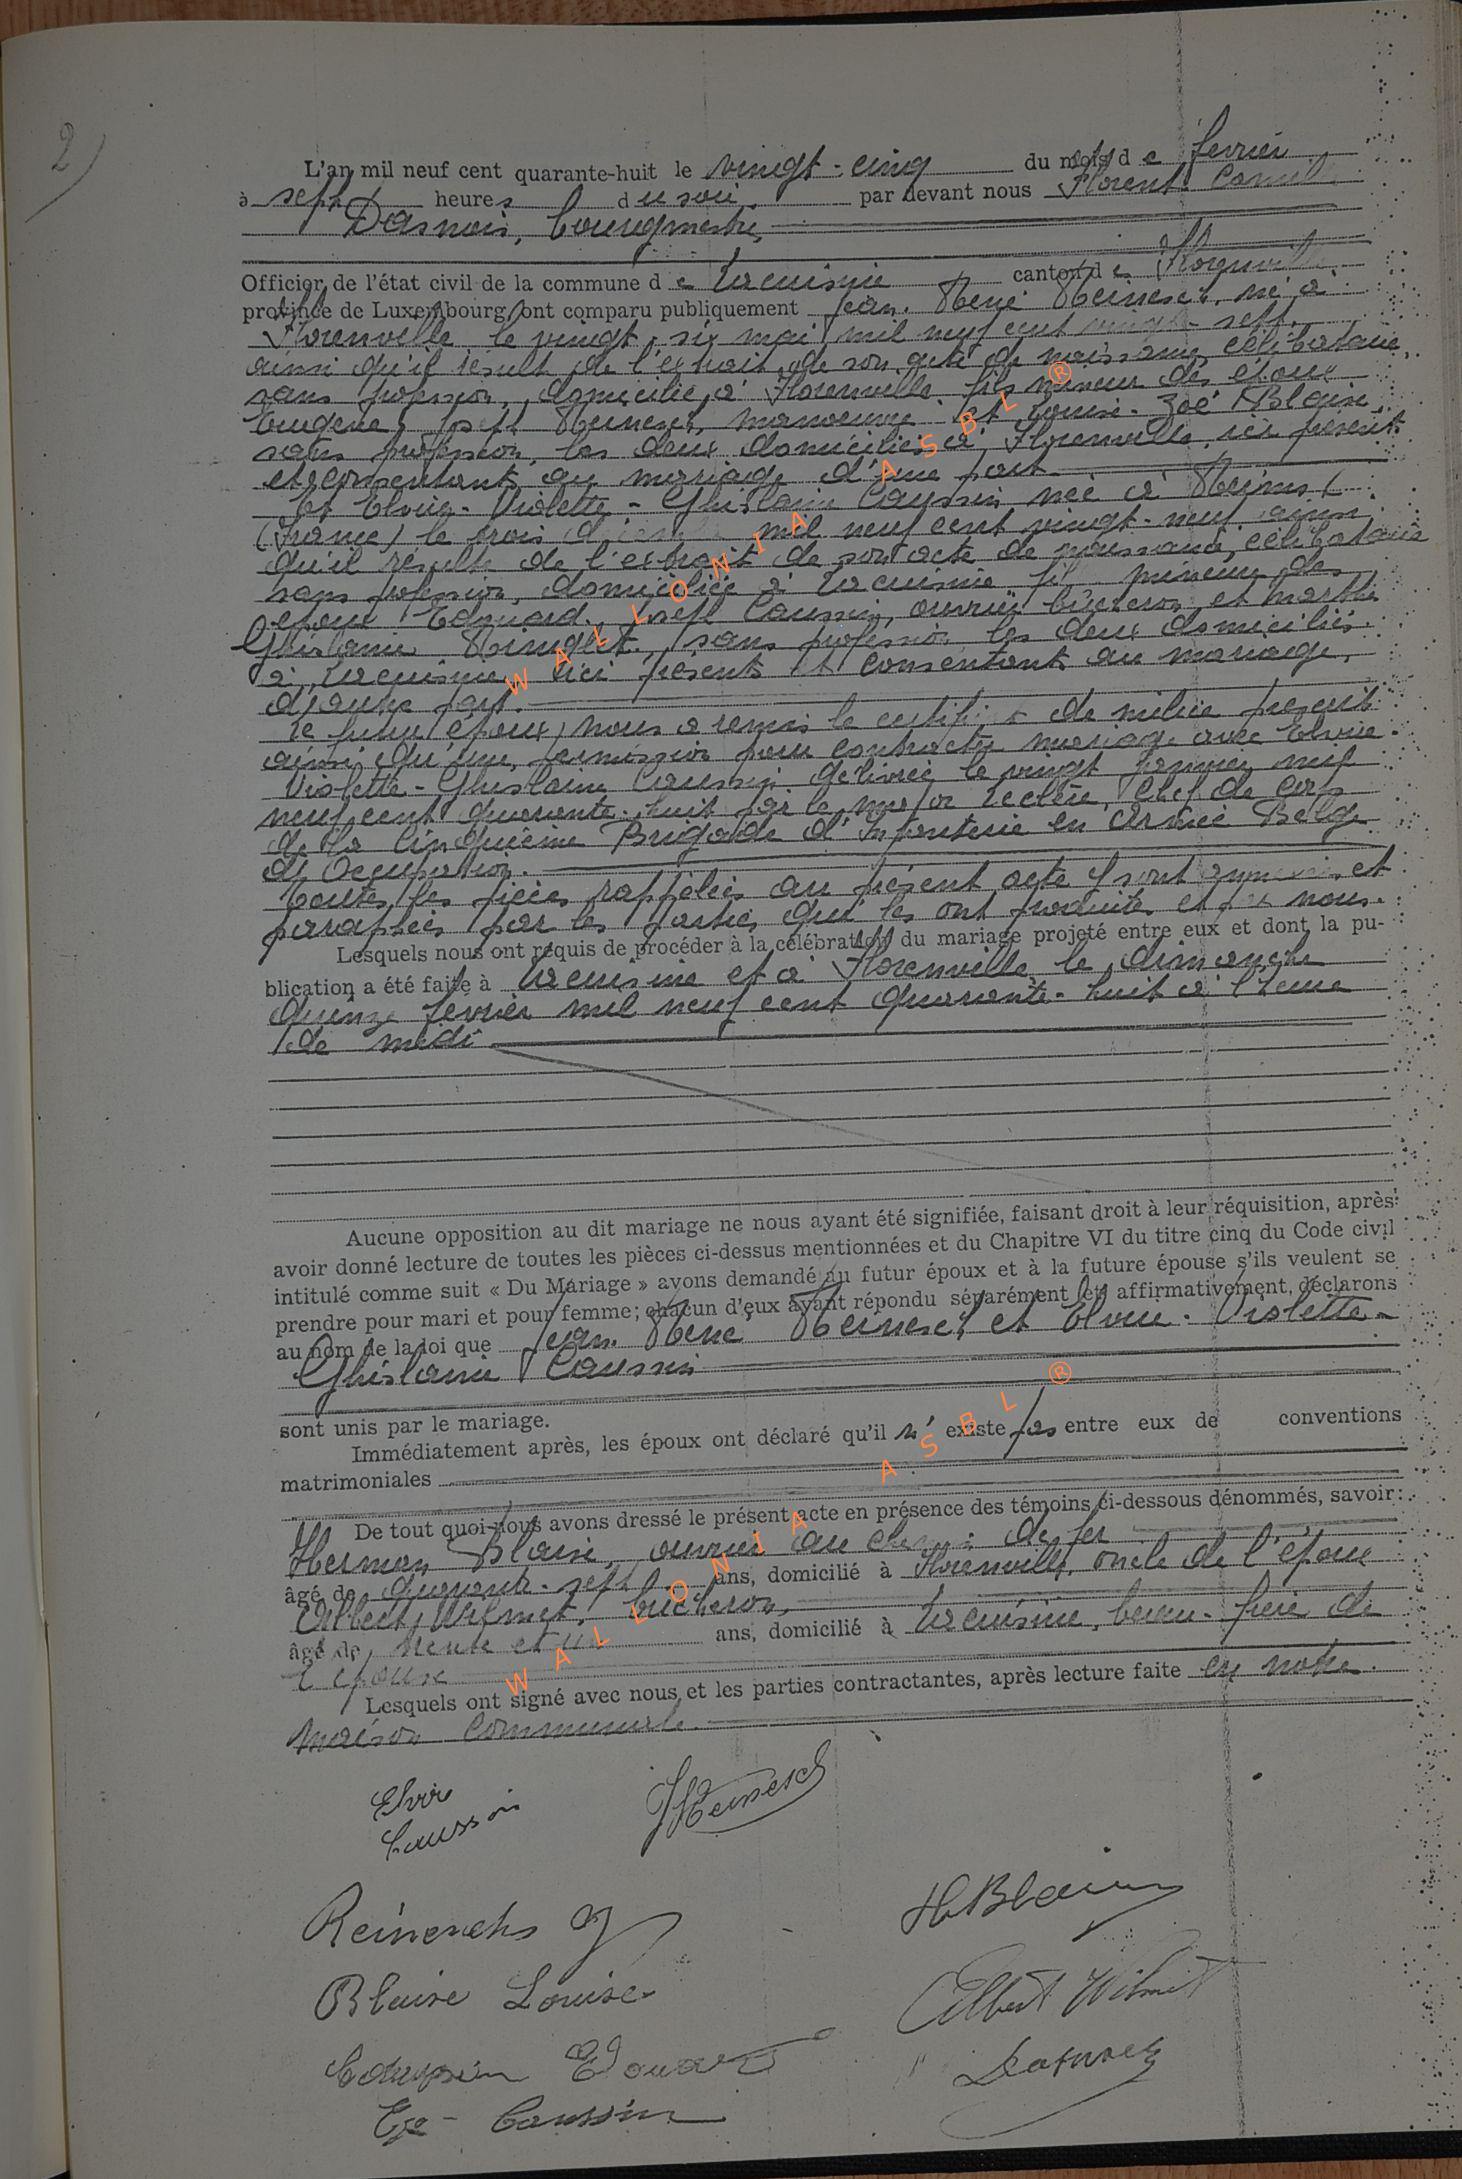 2)
L'an mil neuf cent quarante-huit le vingt-cinq du mois de fevrier
à sept heures du soir par devant nous Florent Camille
Dasnois, bourgmestre
Officier de l'état civil de la commune de Lacuisine canton de Florenville
province de Luxembourg ont comparu publiquement Jean René Reinesch, né à
Florenville le vingt-six mai mil neuf cent vingt-sept
ainsi qu'il résulte de l'extrait de son acte de naissance, célibataire,
sans profession, domicilié à Florenville, fils mineur des époux
Eugène Joseph Reinesch, manoeuvre et Louise-Zoé Blaise,
sans profession, les deux domiciliés à Florenville, ici présents
et consentants au mariage d'une part
Et Elvire-Violette-Ghislaine Caussin née à Reims
(France) le trois mil neuf cent vingt-neuf ainsi
qu'il résulte de l'extrait de son acte de naissance, célibataire
sans profession, domiciliée à Lacuisine fille mineure des
époux Edouard Joseph Caussin, ouvrier bûcheron et Marthe
Ghislaine Ringlet, sans profession les deux domiciliés
à Lacuisine, ici présents et consentants au mariage,
d'autre part.
Le futur époux nous a remis le certificat de milice prescrit
ainsi qu'une permission pour contracter mariage avec Elvire-
Violette-Ghislaine Caussin délivrée le vingt janvier mil
neuf cent quarante-huit par le major Leclère, Chef de Corps
de la Cinquième Brigade d'Infanterie en Armée Belge
d'Occupation.
Toutes les pièces rappelées au présent acte y sont annexées et
paraphées par les parties qui les ont produites et par nous.
Lesquels nous ont requis de procéder à la célébration du mariage projeté entre eux et dont la pu-
blication a été faite à Lacuisine et à Florenville le dimanche
quinze fevrier mil neuf cent quarante-huit à l'heure
de midi
Aucune opposition au dit mariage ne nous ayant été signifiée, faisant droit à leur réquisition, après
avoir donné lecture de toutes les pièces ci-dessus mentionnées et du Chapitre VI du titre cinq du Code civil
intitulé comme suit « Du Mariage » avons demandé au futur époux et à la future épouse s'ils veulent se
prendre pour mari et pour femme; chacun d'eux ayant répondu séparément et affirmativement, déclarons
au nom de la loi que Jean René Reinesch et Elvire-Violette-
Ghislaine Caussin
sont unis par le mariage.
Immédiatement après, les époux ont déclaré qu'il n'existe pas entre eux de conventions
matrimoniales
De tout quoi nous avons dressé le présent acte en présence des témoins ci-dessous dénommés, savoir:
Herman Blaise, ouvrier au chemin de fer
âgé de quarante-sept ans, domicilié à Florenville, oncle de l'époux
Albert Wilmet, bûcheron,
âgé de trente et un ans, domicilié à Lacuisine, beau-frère de
l'épouse
Lesquels ont signé avec nous et les parties contractantes, après lecture faite en notre
maison communale.
Elvire
Caussin
JReinesch
Reinesch
HBlaise
Blaise Louise
Albert Wilmet
Caussin Edouard
Dasnois
Ep- Caussin
WALLONIA ASBL ®
WALLONIA ASBL ®